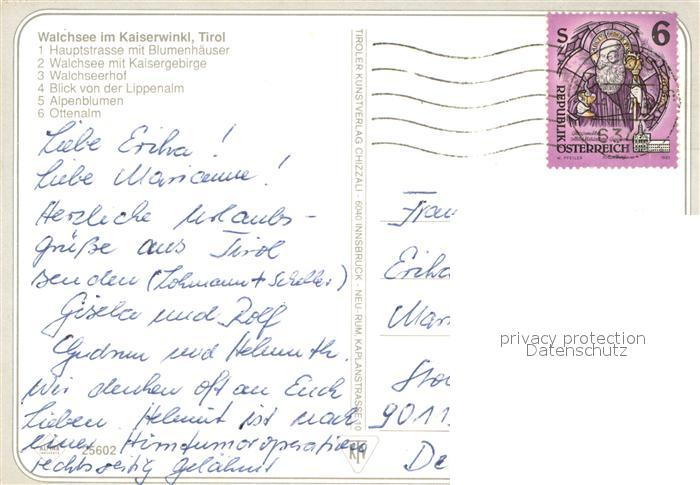 Walchsee im Kaiserwinkl, Tirol
1 Hauptstrasse mit Blumenhäuser
2 Walchsee mit Kaisergebirge
3 Walchseerhof
4 Blick von der Lippenalm
5 Alpenblumen
6 Ottenalm
Liebe Erika!
Liebe Marianne!
Herzliche Urlaubs-
grüße aus Tirol
senden (Lohmann + Scheller)
Gisela und Rolf
Gudrun und Helmuth.
Wir denken oft an Euch
Lieben. Helmut ist nach
einer Hirntumoroperation
rechtsseitig gelähmt
25602
TIROLER KUNSTVERLAG CHIZZALI - 6040 INNSBRUCK - NEU-RUM, KAPLANSTRASSE 10
S 6
REPUBLIK
ÖSTERREICH
W. PFEILER
634
Frau
Erika
Mar
9011
De
privacy protection
Datenschutz